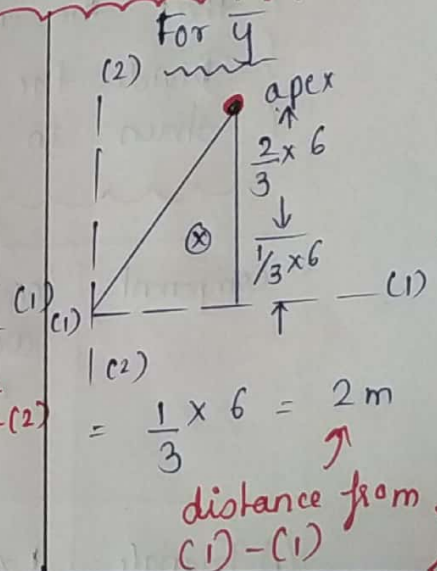 For y̅
(2)
apex
2/3 × 6
1/3 × 6
(1)
(1)
(1)
(2)
-(2)
= 1/3 × 6 = 2m
distance from
(1)-(1)